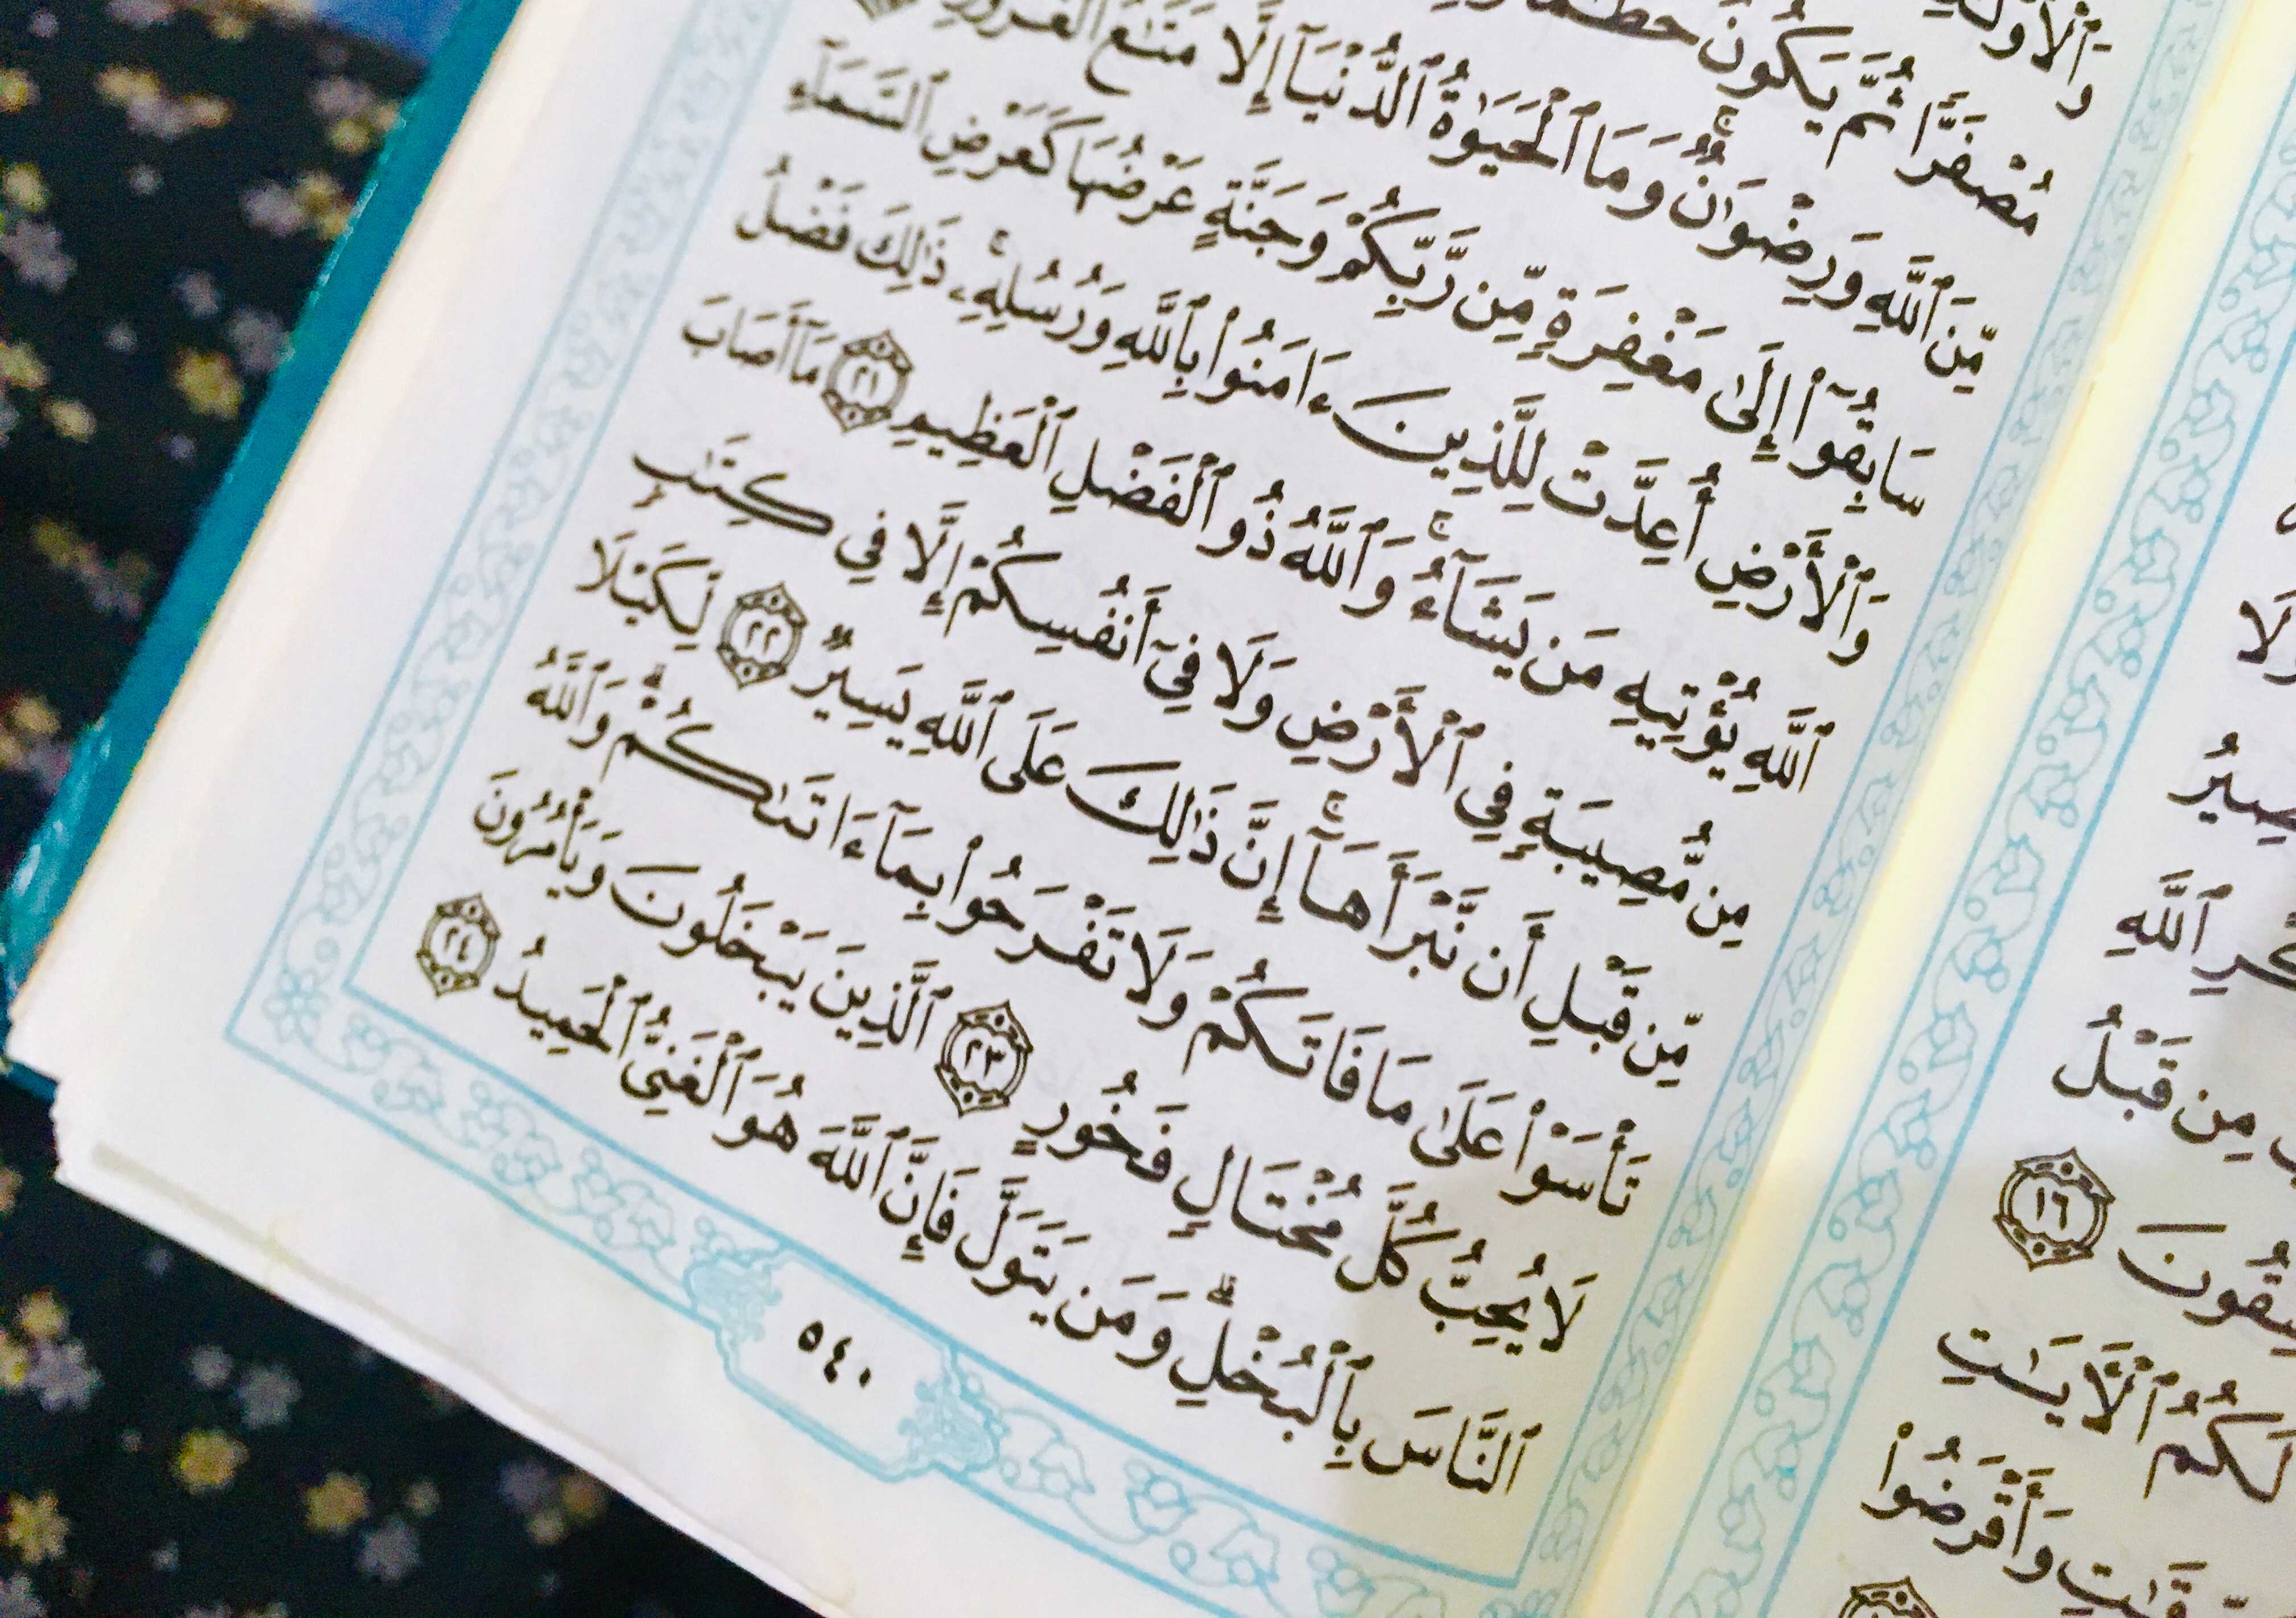 وَٱلْأَوْلَٰدِ
مُصْفَرًّا ثُمَّ يَكُونُ حُطَٰمًا
مِّنَ ٱللَّهِ وَرِضْوَٰنٌ ۚ وَمَا ٱلْحَيَوٰةُ ٱلدُّنْيَآ إِلَّا مَتَٰعُ ٱلْغُرُورِ
سَابِقُوٓا۟ إِلَىٰ مَغْفِرَةٍ مِّن رَّبِّكُمْ وَجَنَّةٍ عَرْضُهَا كَعَرْضِ ٱلسَّمَآءِ
وَٱلْأَرْضِ أُعِدَّتْ لِلَّذِينَ ءَامَنُوا۟ بِٱللَّهِ وَرُسُلِهِۦ ۚ ذَٰلِكَ فَضْلُ
ٱللَّهِ يُؤْتِيهِ مَن يَشَآءُ ۚ وَٱللَّهُ ذُو ٱلْفَضْلِ ٱلْعَظِيمِ ٢١ مَآ أَصَابَ
مِن مُّصِيبَةٍ فِى ٱلْأَرْضِ وَلَا فِىٓ أَنفُسِكُمْ إِلَّا فِى كِتَٰبٍ
مِّن قَبْلِ أَن نَّبْرَأَهَآ ۚ إِنَّ ذَٰلِكَ عَلَى ٱللَّهِ يَسِيرٌ ٢٢ لِّكَيْلَا
تَأْسَوْا۟ عَلَىٰ مَا فَاتَكُمْ وَلَا تَفْرَحُوا۟ بِمَآ ءَاتَىٰكُمْ ۗ وَٱللَّهُ
لَا يُحِبُّ كُلَّ مُخْتَالٍ فَخُورٍ ٢٣ ٱلَّذِينَ يَبْخَلُونَ وَيَأْمُرُونَ
ٱلنَّاسَ بِٱلْبُخْلِ ۗ وَمَن يَتَوَلَّ فَإِنَّ ٱللَّهَ هُوَ ٱلْغَنِىُّ ٱلْحَمِيدُ ٢٤
٥٤٠
ٱللَّهِ
مِن قَبْلُ
١٦
لَكُمُ ٱلْءَايَٰتِ
وَأَقْرَضُوا۟